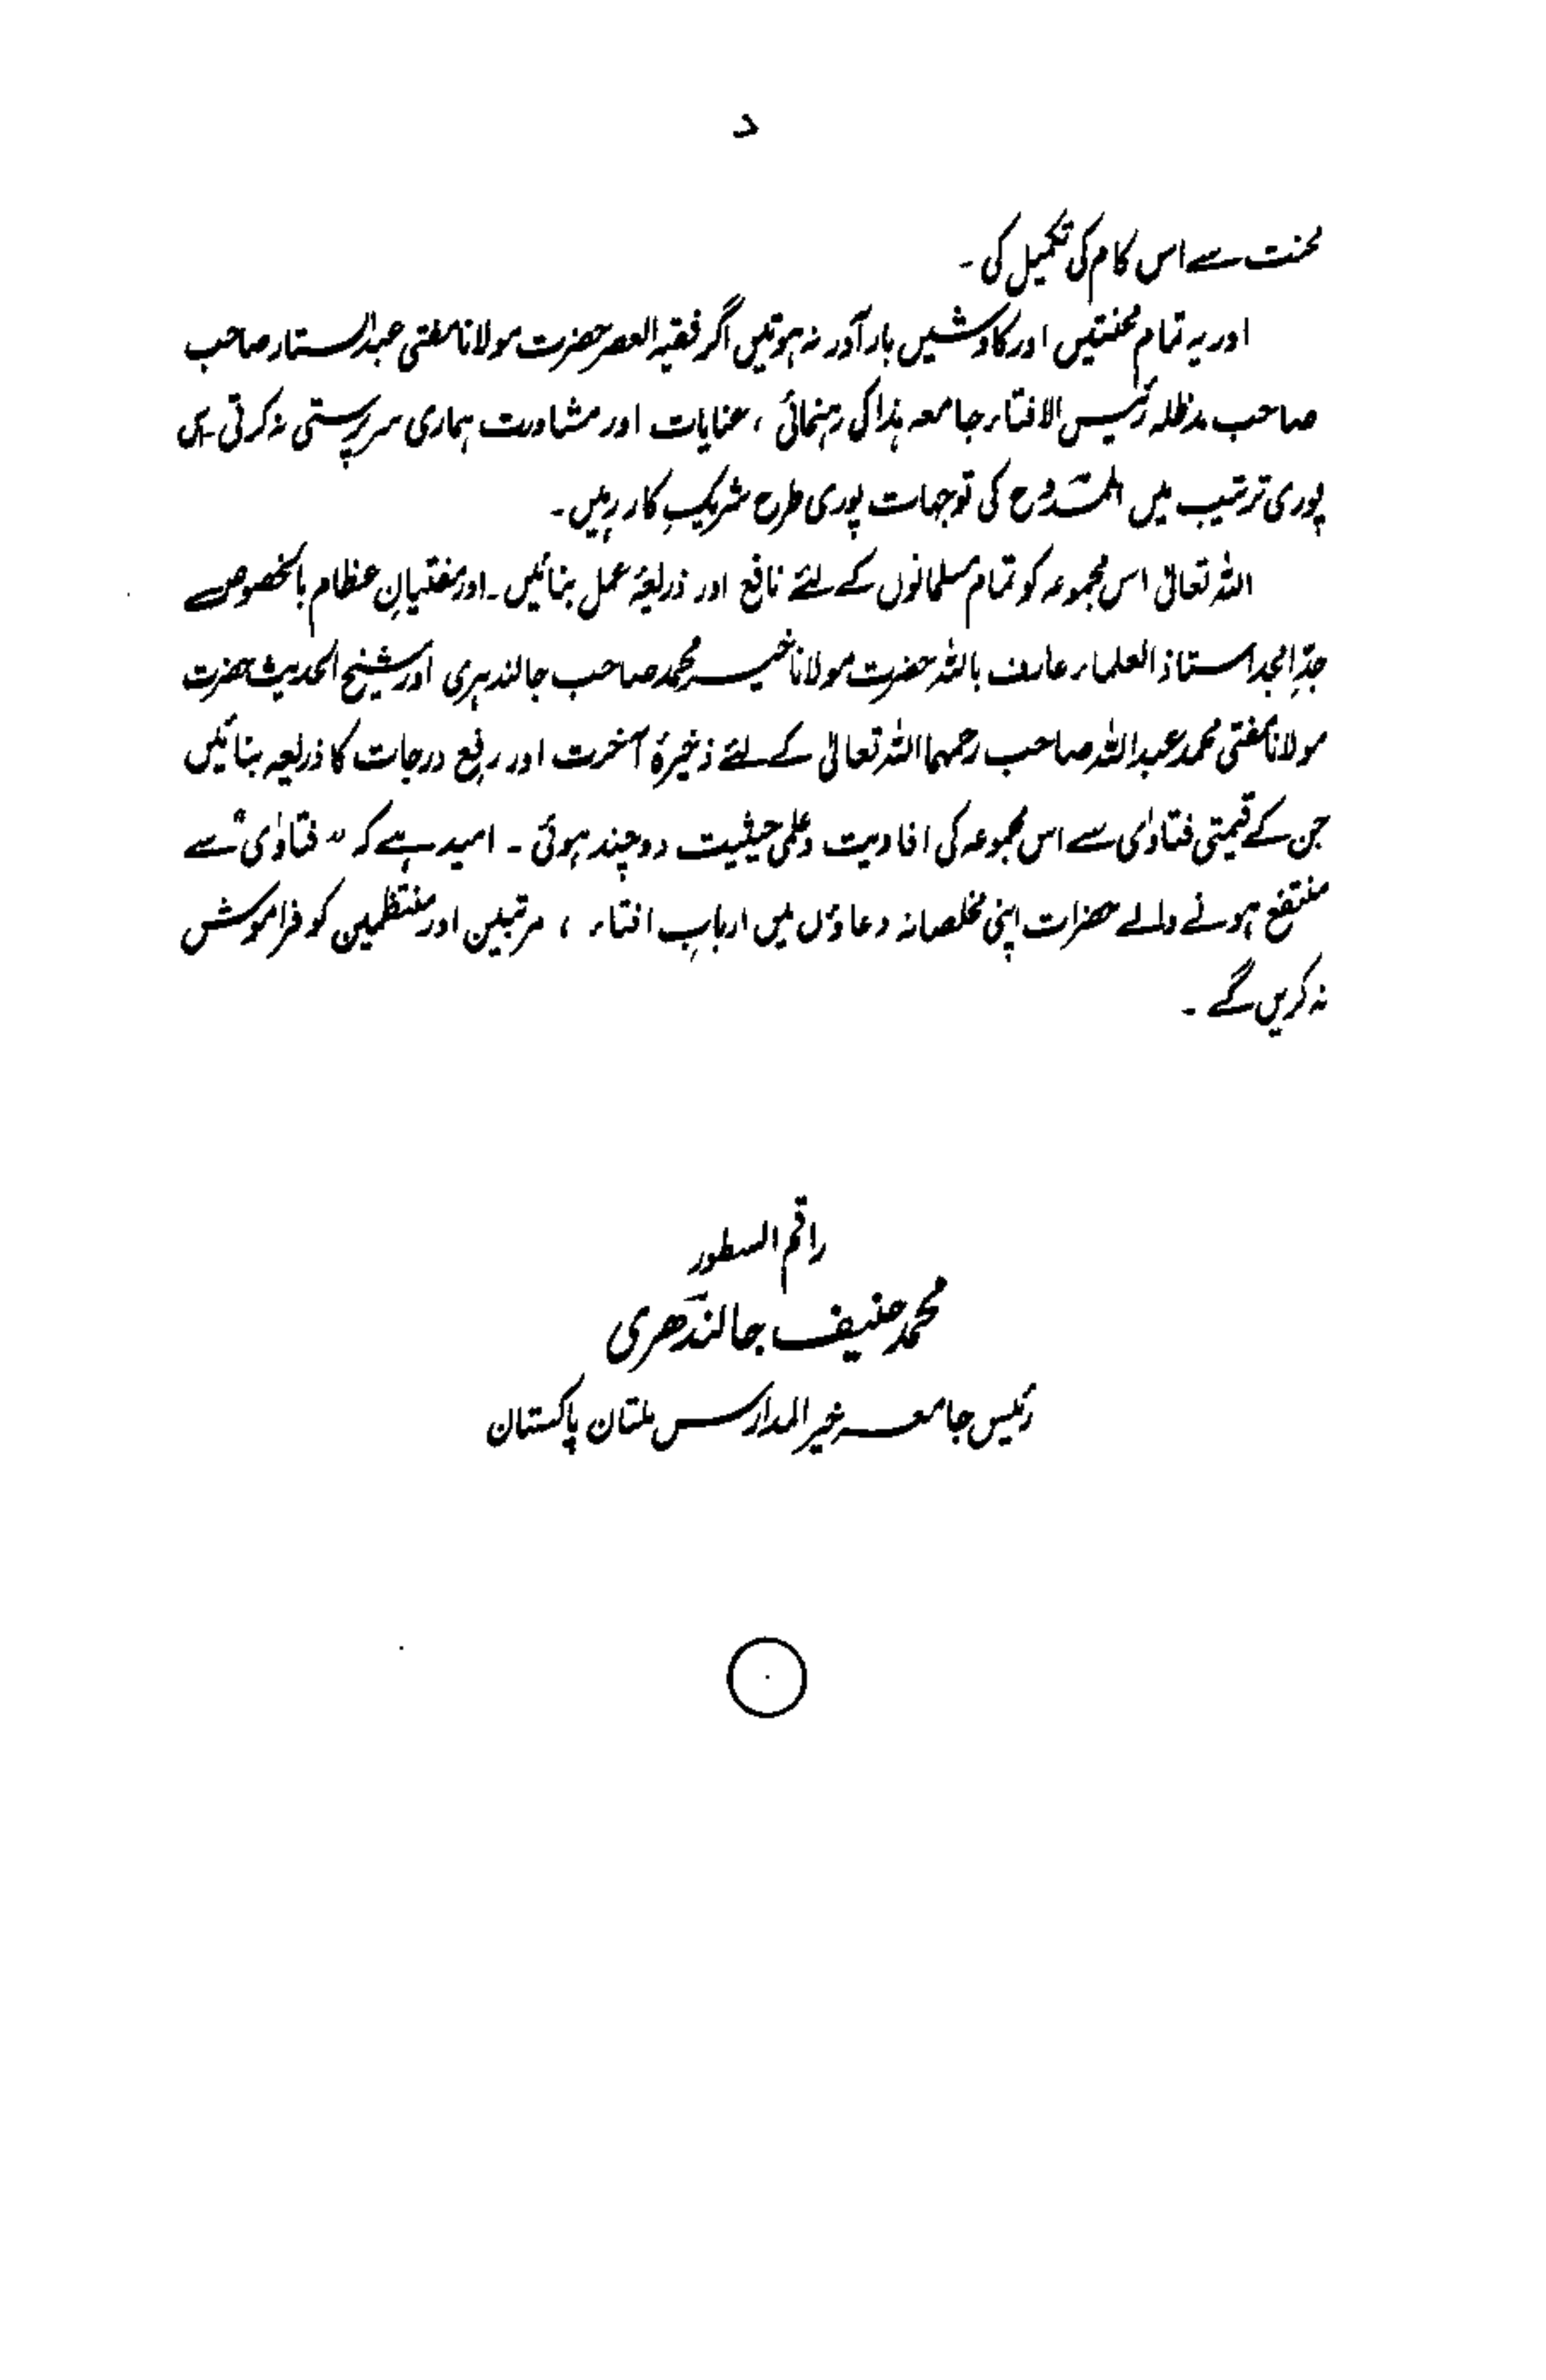 د
محنت سے اس کام کی تکمیل کی ۔
اور یہ تمام محنتیں اور کاوشیں بار آور نہ ہوتیں اگر فقیہ العصر حضرت مولانا مفتی عبدالستار صاحب
صاحب مدظلہ رئیس الافتاء جامعہ ہذا کی رہنمائی ، عنایات اور مشاورت ہماری سرپرستی نہ کرتی
پوری ترتیب میں کی توجہات پوری طرح شریکِ کار رہیں ۔
اللہ تعالیٰ اس مجموعہ کو تمام مسلمانوں کے لئے نافع اور ذریعۂ عمل بنائیں ۔ اور مفتیانِ عظام بالخصوص
جدِّ امجد استاذ العلماء عارف باللہ حضرت مولانا خیر محمد صاحب جالندہری اور شیخ الحدیث حضرت
مولانا مفتی محمد عبداللہ صاحب رحمہما اللہ تعالیٰ کے لئے ذخیرۂ آخرت اور رفع درجات کا ذریعہ بنائیں
جن کے قیمتی فتاوٰی سے اس مجموعہ کی افادیت و علمی حیثیت دوچند ہوئی ۔ امید ہے کہ " فتاوٰی " سے
منتفع ہونے والے حضرات اپنی مخلصانہ دعاؤں میں اربابِ افتاء ، مرتبین اور منتظمین کو فراموش
نہ کریں گے ۔
راقم السطور
محمد حنیف جالندھری
رئیس جامعہ خیر المدارس ملتان پاکستان